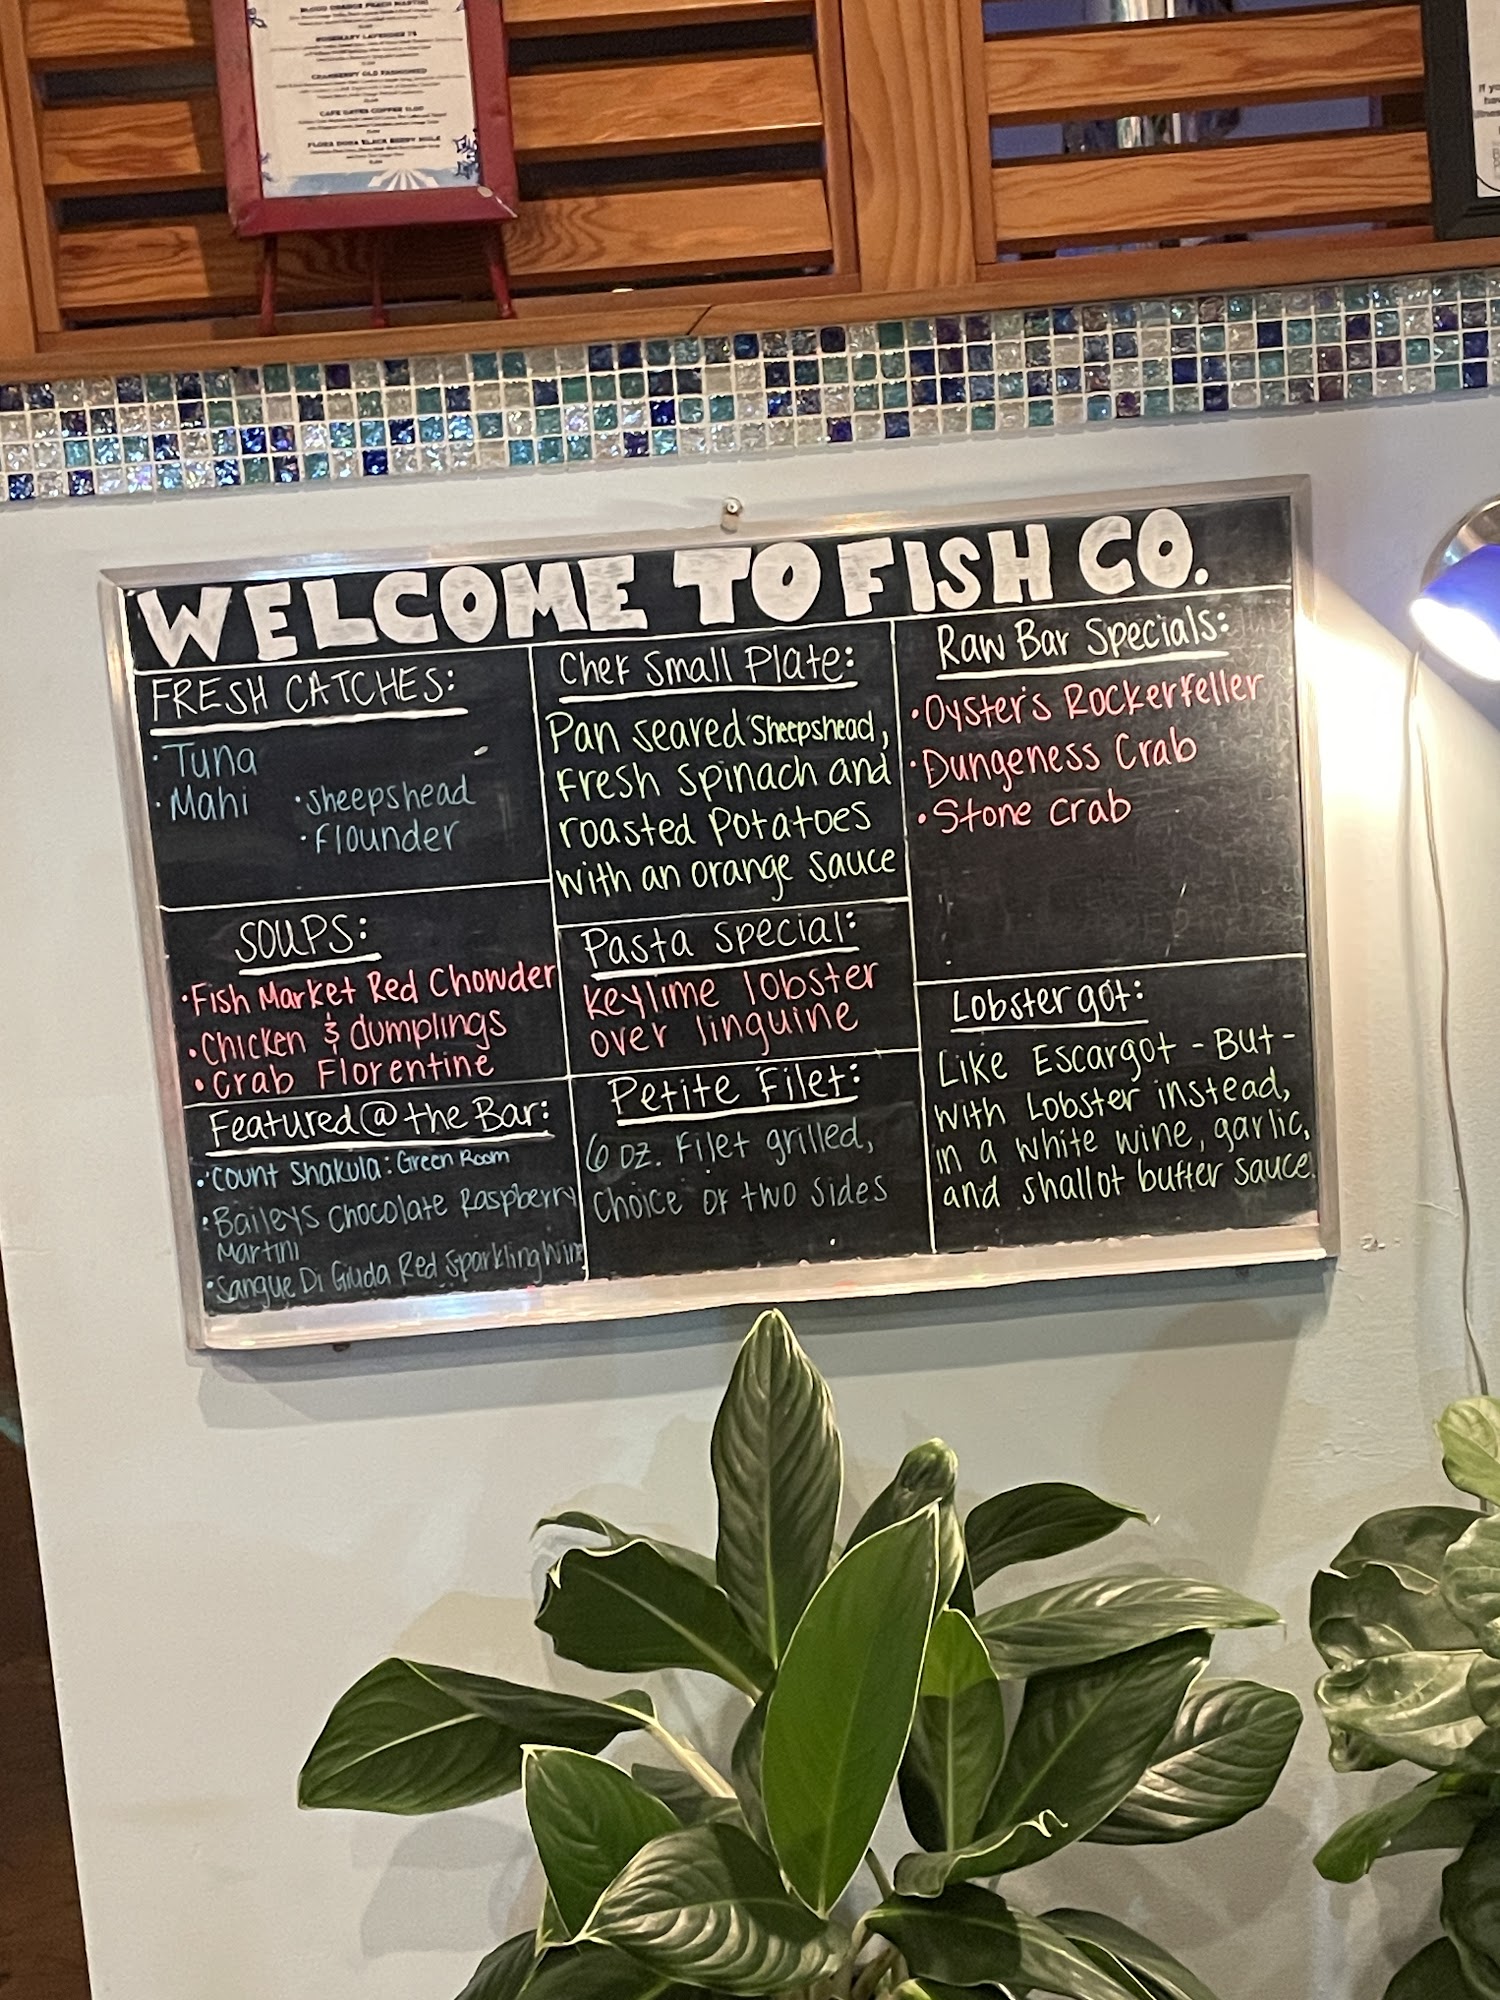 BLOOD ORANGE PEACH MARTINI
ROSEMARY LAVENDER 75
CRANBERRY OLD FASHIONED
CAFE GATES COFFEE
FLORA DORA BLACK BERRY MULE
If yo
hav
WELCOME TO FISH CO.
FRESH CATCHES:
· Tuna
· Mahi
· sheepshead
· flounder
SOUPS:
· Fish Market Red Chowder
· Chicken & dumplings
· Crab Florentine
Featured @ the Bar:
· Count Shakula: Green Room
· Baileys Chocolate Raspberry
Martini
· Sangue Di Giuda Red Sparkling Wine
Chef Small Plate:
Pan seared sheepshead,
fresh spinach and
roasted potatoes
with an orange sauce
Pasta special:
Keylime lobster
over linguine
Petite Filet:
6 oz. Filet grilled,
Choice of two sides
Raw Bar Specials:
· Oyster's Rockerfeller
· Dungeness Crab
· Stone crab
Lobster got:
Like Escargot - But -
with Lobster instead,
in a white wine, garlic,
and shallot butter sauce.